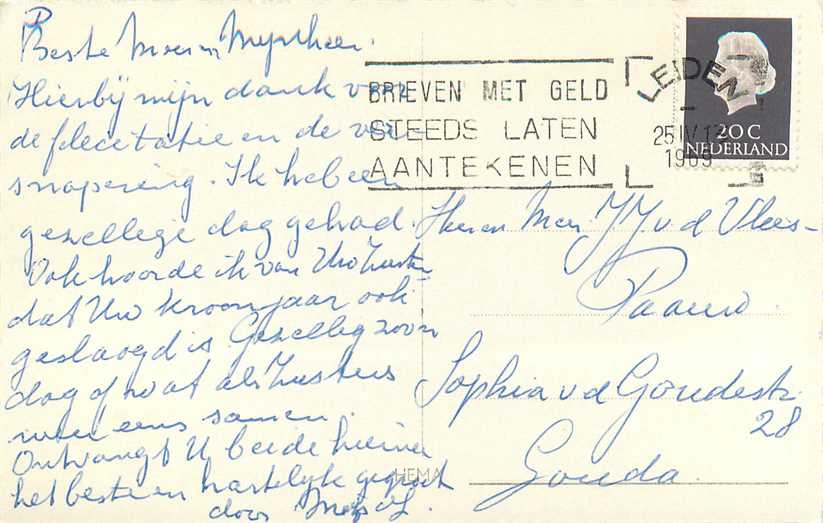 Beste Mevr. en Mijnheer.
Hierbij mijn dank voor
de felecitatie en de ver-
snapering. Ik heb een
gezellige dag gehad.
Ook hoorde ik van Uw Zuster
dat Uw kroonjaar ook
geslaagd is Gezellig zoo'n
dag of wat als Zusters
weer eens samen.
Ontvangt U beide hierna
het beste en hartelijk gegroet
door
BRIEVEN MET GELD
STEEDS LATEN
AANTEKENEN
LEIDEN
25 IV
1969
20 C
NEDERLAND
Heer en Mevr J J v d Vlees-
Paauw.
Sophia v d Goudestr.
28
Gouda.
HEMA